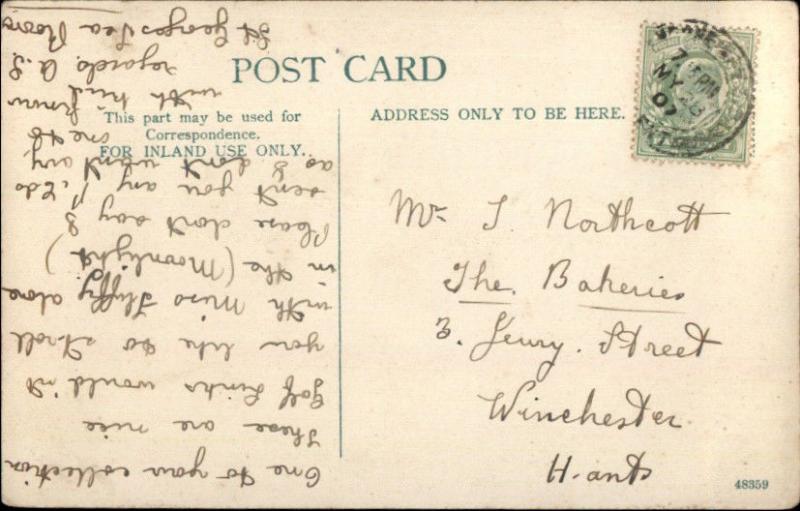 POST CARD
This part may be used for
Correspondence.
FOR INLAND USE ONLY.
ADDRESS ONLY TO BE HERE.
7 PM
MY
07
Mr. J. Northcott
The Bakeries
3. Jewry. Street
Winchester
Hants
48359
One to your collection
These are nice
Golf Links wouldn't
you like to stroll
with Miss Fluffy alone
in the (Moonlight)
Please don't say I
sent you any P.C do
as I don't want any
one to know
with kind
regards A.S
St Georges Tea Rooms